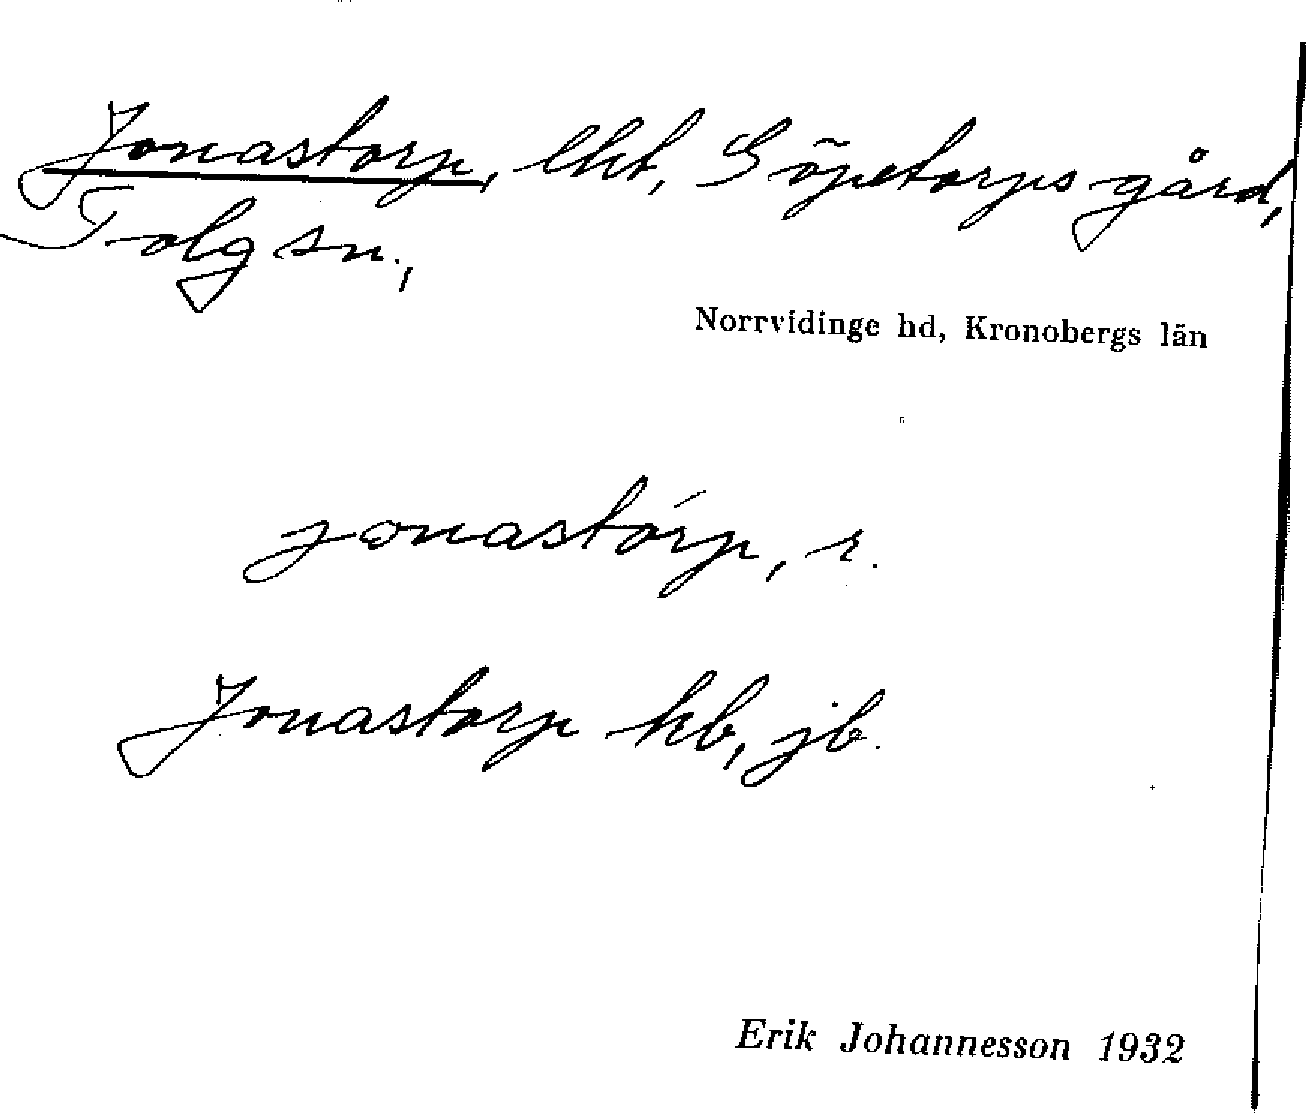 Jonastorp, lht, Göpetorps gård,
Tolg sn.,
Norrvidinge hd, Kronobergs län
jonastórp, r.
Jonastorp hb, jb.
Erik Johannesson 1932